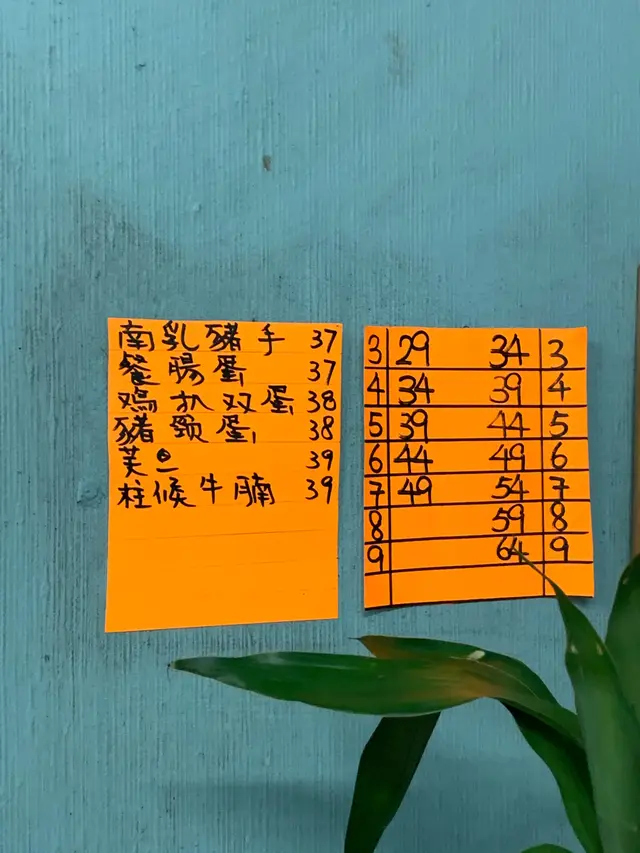 南乳豬手 37
餐腸蛋 37
鸡扒双蛋 38
豬颈蛋 38
芙旦 39
柱候牛腩 39
3 29 34 3
4 34 39 4
5 39 44 5
6 44 49 6
7 49 54 7
8 59 8
9 64 9